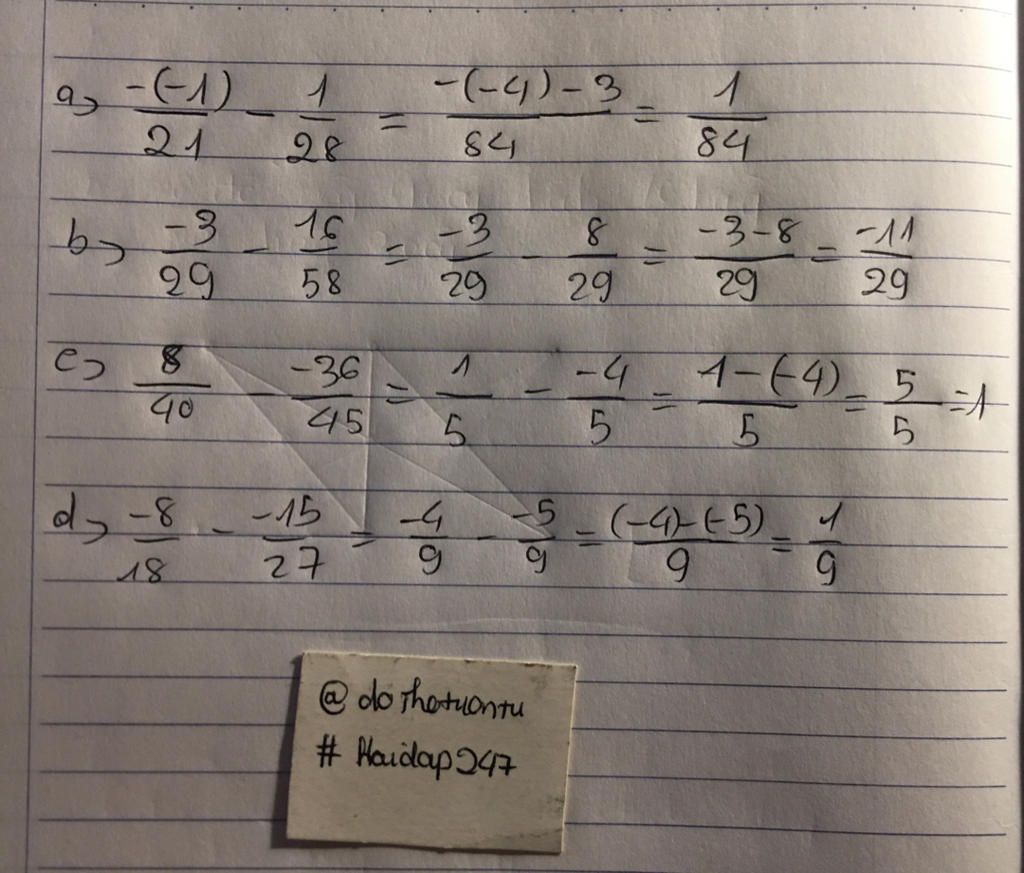 a) -(-1)/21 - 1/28 = -(-4)-3/84 = 1/84
b) -3/29 - 16/58 = -3/29 - 8/29 = -3-8/29 = -11/29
c) 8/40 - -36/45 = 1/5 - -4/5 = 1-(-4)/5 = 5/5 = 1
d) -8/18 - -15/27 = -4/9 - -5/9 = (-4)-(-5)/9 = 1/9
@dothetuantu
# Hoidap247